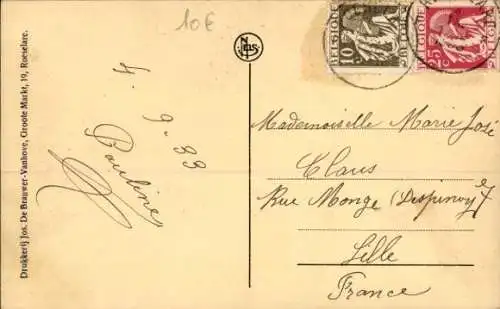 10€
Drukkerij Jos. De Brauwer-Vanhove, Groote Markt, 19, Roeselare.
4. 9. 33
Pauline
BELGIQUE
10 c
BELGIË
BELGIQUE
25 c
BELGIË
Mademoiselle Marie José
Claus
Rue Monge (Despinoy) 7
Lille
France